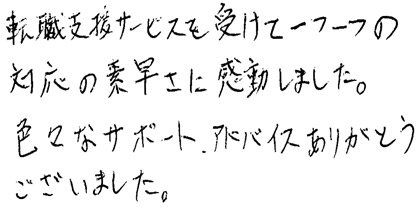 転職支援サービスを受けて一つ一つの
対応の素早さに感動しました。
色々なサポート、アドバイスありがとう
ございました。